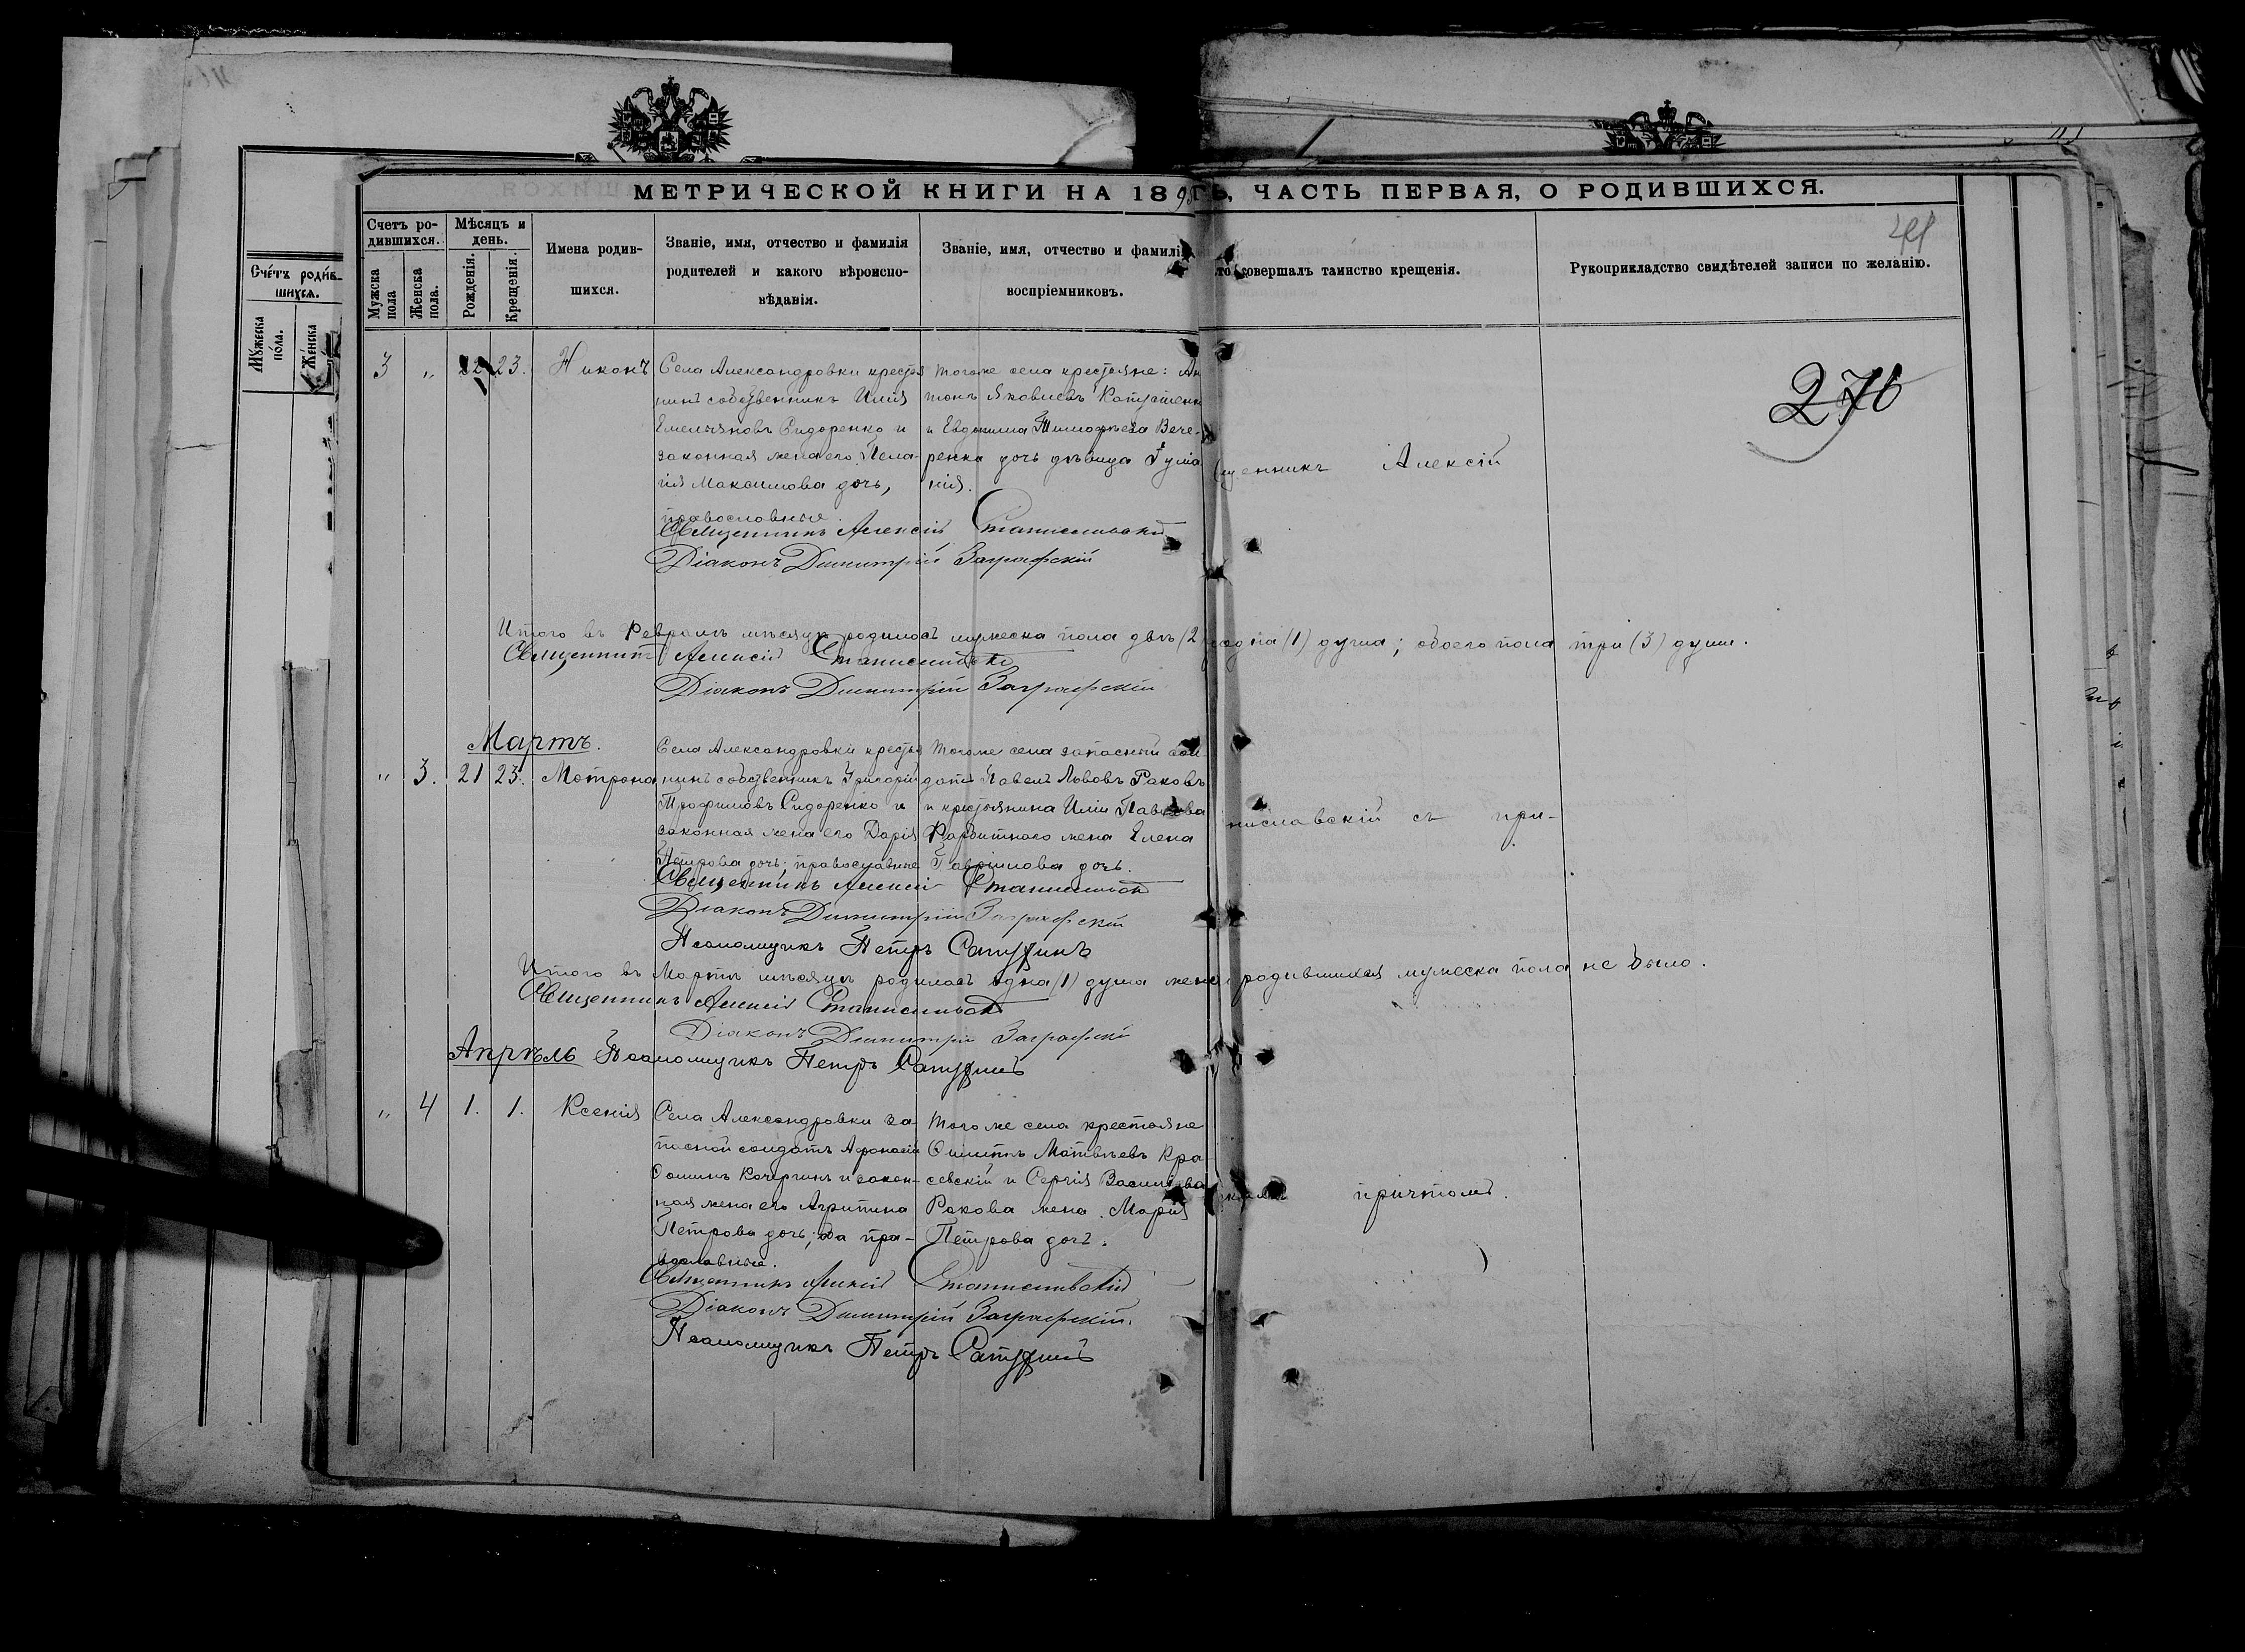 МЕТРИЧЕСКОЙ КНИГИ НА 189 ГЪ, ЧАСТЬ ПЕРВАЯ, О РОДИВШИХСЯ.
Счетъ ро-
дившихся.
Мужска
пола
Женска
пола.
Мѣсяцъ и
день.
Рожденія.
Крещенія.
Имена родив-
шихся.
Званіе, имя, отчество и фамилія
родителей и какого вѣроиспо-
вѣданія.
Званіе, имя, отчество и фамилі
воспріемниковъ.
то совершалъ таинство крещенія.
Рукоприкладство свидѣтелей записи по желанію.
Счётъ родив-
шихся.
Мужеска
пола.
Женска
3 „ 22 23. Никонъ
Села Александровки кресть
нинъ собственникъ Илія
Емельяновъ Сидоренко и
законная жена его Пела-
гія Максимова дочь,
православные
Тогоже села крестьяне: Ан
тонъ Яковлевъ
и Евдокима Тимофеева Вече-
ренка дочь дѣвица
нія.
щенникъ Алексій
Священникъ Алексій Станиславскій
Діаконъ Димитрій Заграфскій
Итого въ Февралѣ мѣсяцѣ родилось мужеска пола двѣ (2) одна (1) душа; обоего пола три (3) души.
Священникъ Алексій Станиславскій
Діаконъ Димитрій Заграфскій
Мартъ.
„ 3. 21 23. Мотрона
Села Александровки кресть
нинъ собственникъ Григорій
Трофимовъ Сидоренко и
законная жена его Дарія
Петрова дочь; православные
Тогоже села запасный сол
датъ Павелъ Львовъ Раковъ
и крестьянина Иліи Павлова
жена Елена
Гавріилова дочь.
ниславскій съ при-
Священникъ Алексій Станиславскій
Діаконъ Димитрій Заграфскій
Псаломщикъ Петръ
Итого въ Мартѣ мѣсяцѣ родилась одна (1) душа жен родившихся мужеска пола не было.
Священникъ Алексій Станиславскій
Діаконъ Димитрій Заграфскій
Апрѣль Псаломщикъ Петръ
„ 4 1. 1. Ксенія
Села Александровки за
пасной солдатъ Афонасій
Фоминъ Кочергинъ и закон-
ная жена его Агрипина
Петрова дочь; оба пра-
вославные.
Тогоже села крестьяне
Филиппъ Матвѣевъ Кра
севскій и Сергія Василіева
Ракова жена Марія
Петрова дочь.
причтомъ.
Священникъ Алексій Станиславскій
Діаконъ Димитрій Заграфскій.
Псаломщикъ Петръ